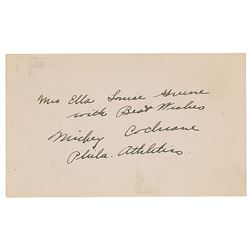 Mrs Ella Louise Greene
with Best Wishes
Mickey Cochrane
Phila. Athletics.